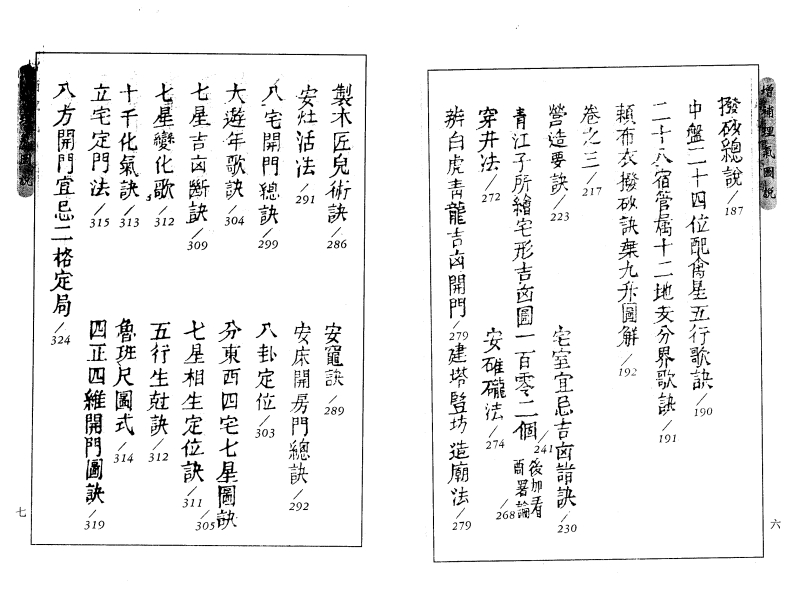 增補理氣圖說
撥砂總說/187
中盤二十四位配禽星五行歌訣/190
二十八宿管屬十二地支分界歌訣/191
賴布衣撥砂訣棄九升圖解/192
卷之三/217
營造要訣/223
宅室宜忌吉凶諧訣/230
青江子所繪宅形吉凶圖一百零二個/241
後加看
商署論/268
穿井法/272
安碓礲法/274
辨白虎青龍吉凶開門/279
建塔豎坊造廟法/279
六
圖說
製木匠兒術訣/286
安竈訣/289
安灶活法/291
安床開房門總訣/292
八宅開門總訣/299
八卦定位/303
大遊年歌訣/304
分東西四宅七星圖訣/305
七星吉凶斷訣/309
七星相生定位訣/311
七星變化歌/312
五行生尅訣/312
十干化氣訣/313
魯班尺圖式/314
立宅定門法/315
四正四維開門圖訣/319
八方開門宜忌二格定局/324
七